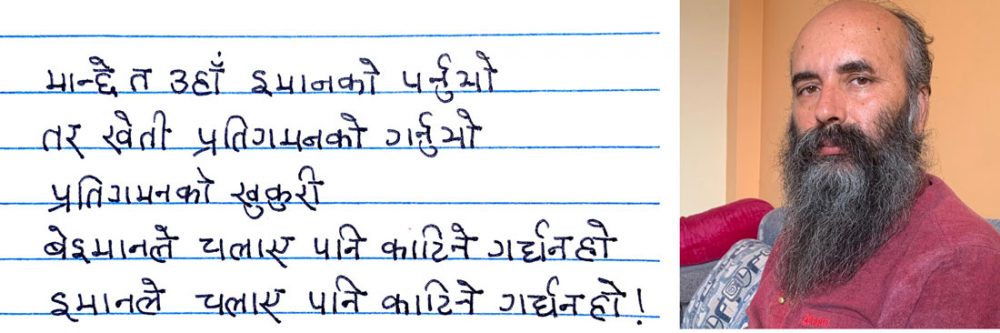 मान्छे त उहाँ इमानको पर्नुभो
तर खेती प्रतिगमनको गर्नुभो
प्रतिगमनको खुकुरी
बेइमानले चलाए पनि काटिने गर्धन हो
इमानले चलाए पनि काटिने गर्धन हो!